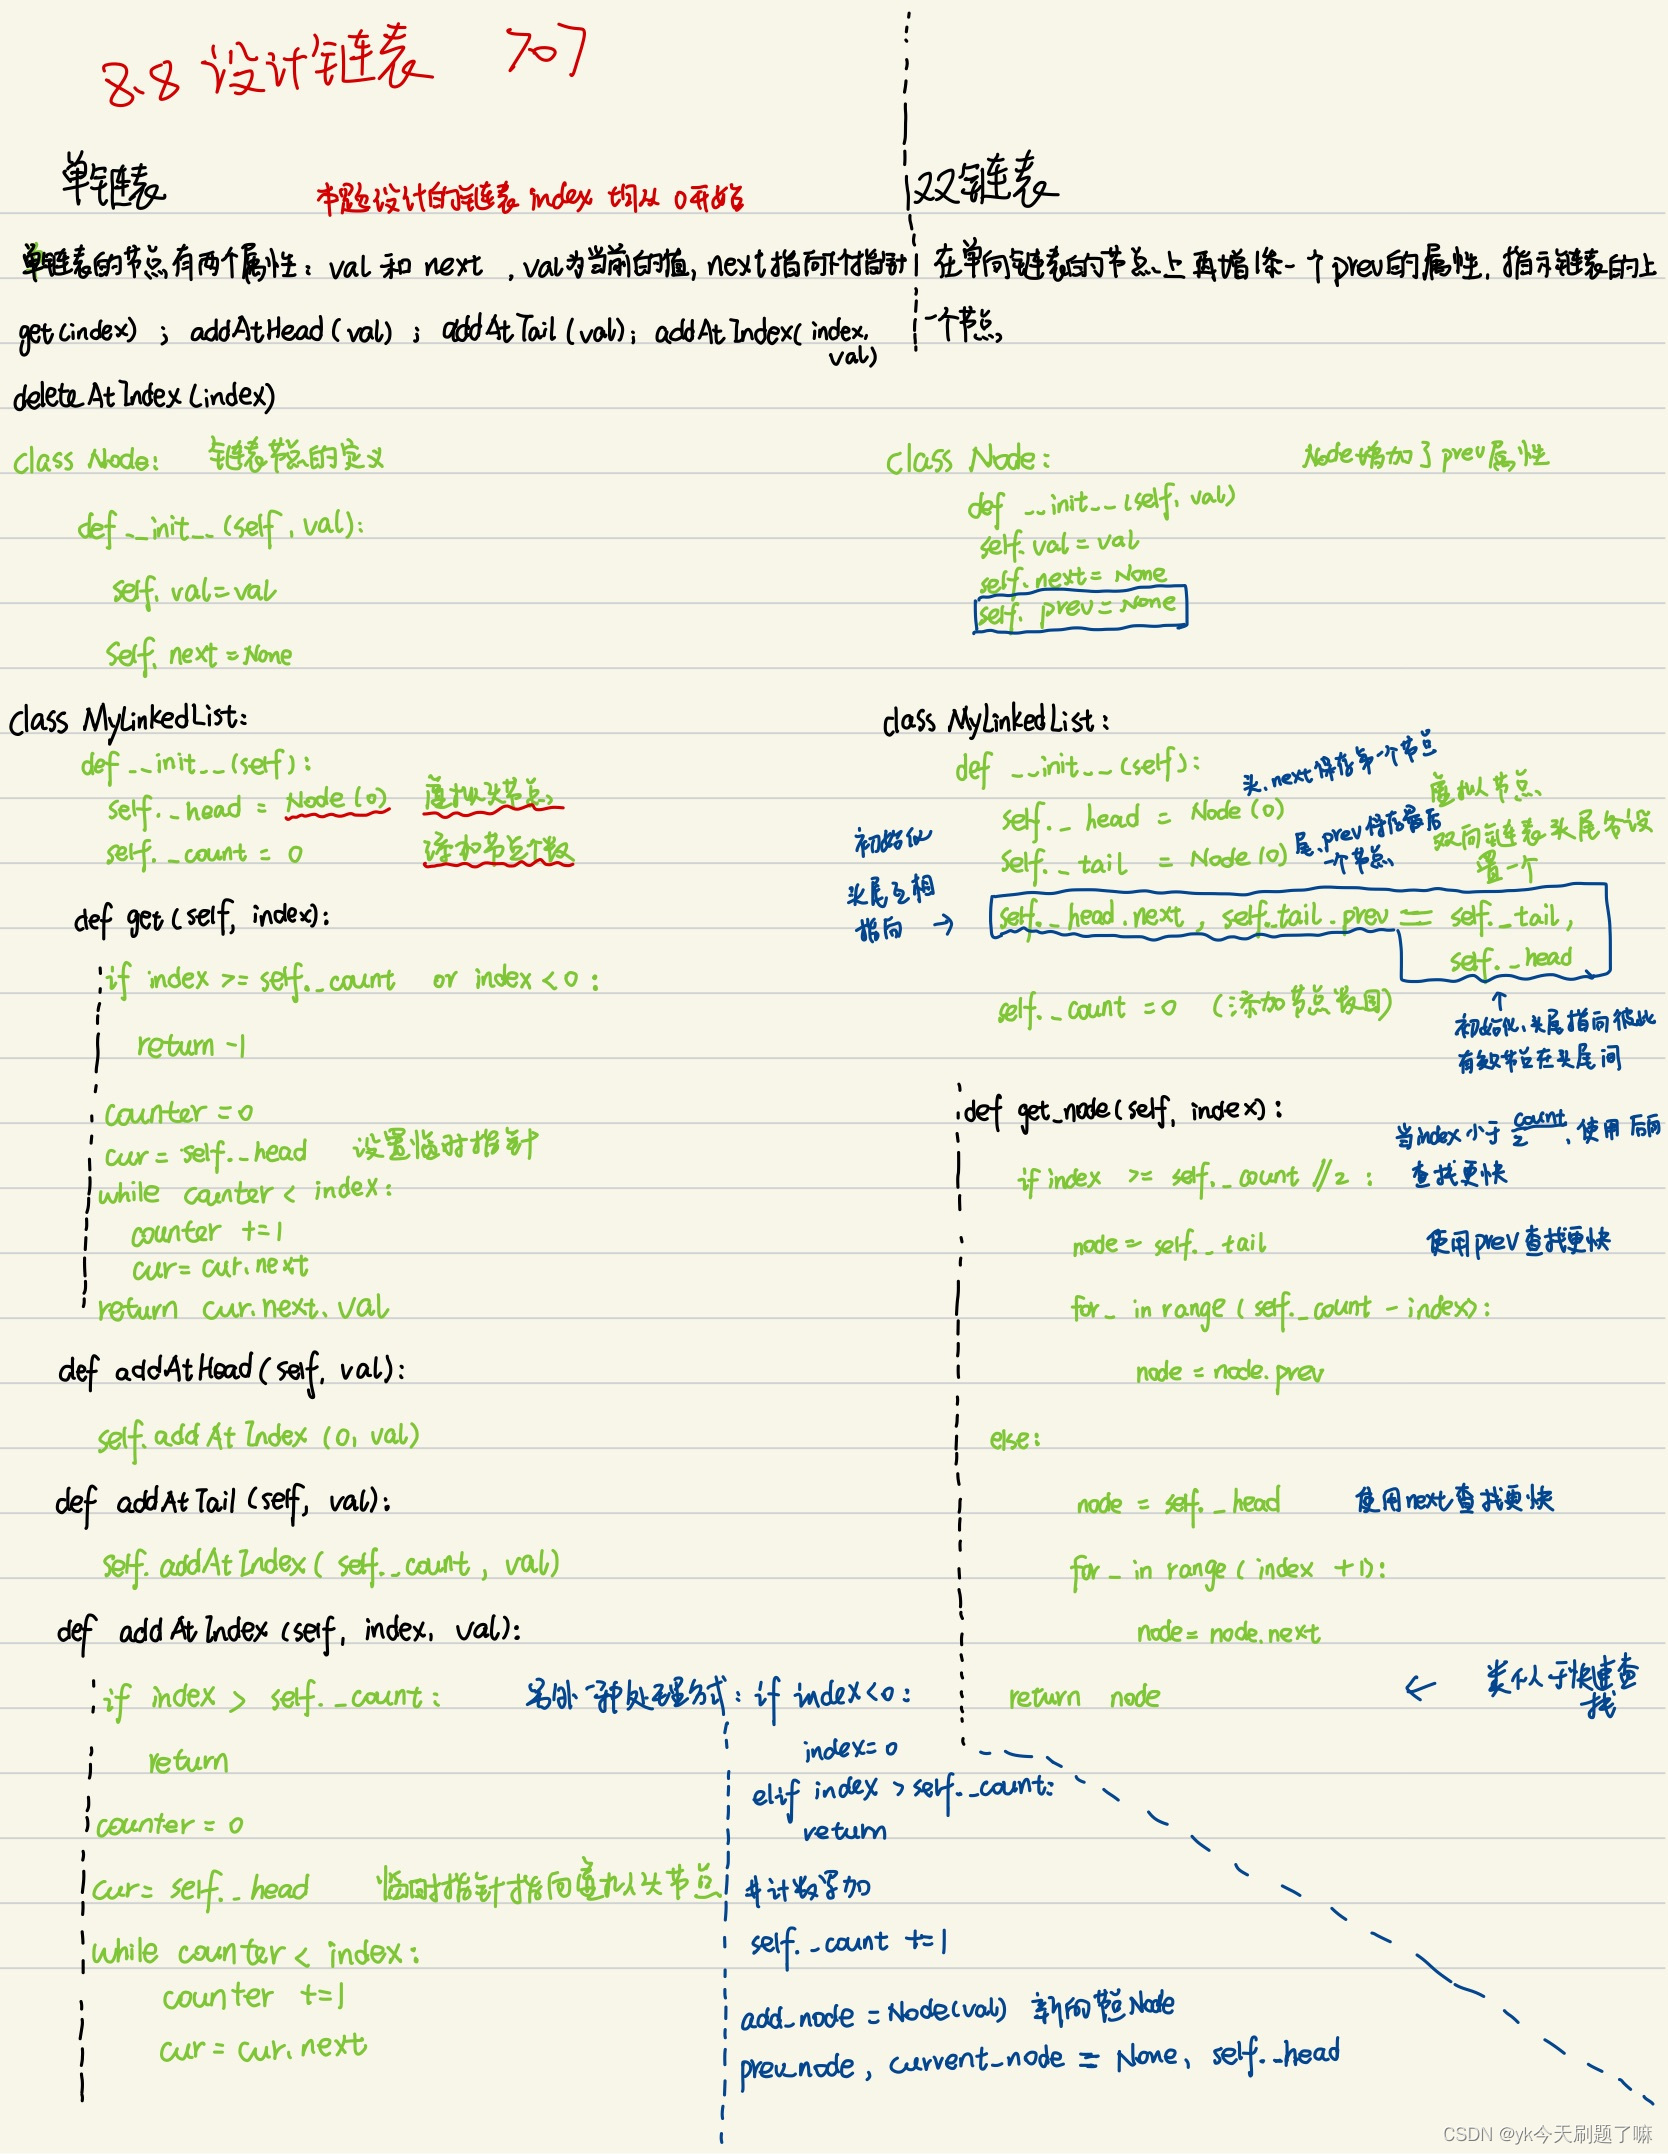 8.8 设计链表 707
单链表
本题设计的链表 index 均从 0开始
单链表的节点有两个属性: val 和 next , val为当前的值, next指向下个指针
get(index) ; addAtHead(val) ; addAtTail(val); addAtIndex(index,
val)
deleteAtIndex(index)
class Node: 链表节点的定义
def __init__(self, val):
self.val=val
self.next=None
class MyLinkedList:
def __init__(self):
self._head = Node(0) 虚拟头节点
self._count = 0 添加节点个数
def get(self, index):
if index >= self._count or index <0 :
return -1
counter =0
cur = self._head 设置临时指针
while counter < index:
counter +=1
cur= cur.next
return cur.next.val
def addAtHead(self, val):
self.addAtIndex(0, val)
def addAtTail(self, val):
self.addAtIndex(self._count, val)
def addAtIndex(self, index, val):
if index > self._count:
return
counter = 0
cur= self._head 临时指针指向虚拟头节点
while counter < index:
counter +=1
cur = cur.next
另外一种处理方式: if index<0:
index=0
elif index >self._count:
return
#计数器加
self._count +=1
add_node = Node(val) 新的节点Node
prev_node, current_node = None, self._head
双链表
在单向链表的节点上再增添一个prev的属性, 指示链表的上
一个节点
class Node: Node增加了prev属性
def __init__(self, val)
self.val=val
self.next= None
self.prev=None
class MyLinkedList:
def __init__(self):
头.next保存第一个节点
self._head = Node(0) 虚拟节点
self._tail = Node(0) 尾.prev保存最后
一个节点
双向链表头尾各设
置一个
初始化
头尾互相
指向 →
self._head.next, self._tail.prev = self._tail,
self._head
self._count =0 (添加节点数目)
↑
初始化,头尾指向彼此
有效节点在头尾间
def get_node(self, index):
当index小于 count/2, 使用后向
if index >= self._count //2 : 查找更快
node = self._tail 使用prev查找更快
for _ in range(self._count - index):
node = node.prev
else:
node = self._head 使用next查找更快
for _ in range(index +1):
node= node.next
return node ← 类似于快速查
找
CSDN @yk今天刷题了嘛